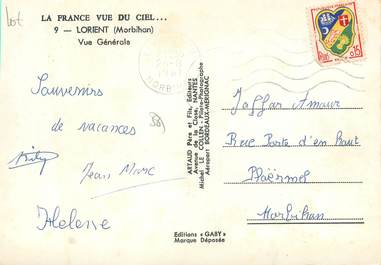 lot
LA FRANCE VUE DU CIEL...
9 — LORIENT (Morbihan)
Vue Générale
Souvenirs
de vacances
Jean Marc
Helene
ARTAUD Père et Fils, Editeurs
Avenue de la Close, NANTES
Michel LE COLLEN Pilote-Photographe
Aéroport BORDEAUX-MERIGNAC
Editions « GABY »
Marque Déposée
0,15
MORBIHAN
Rue Porte d'en haut
Ploërmel
Morbihan